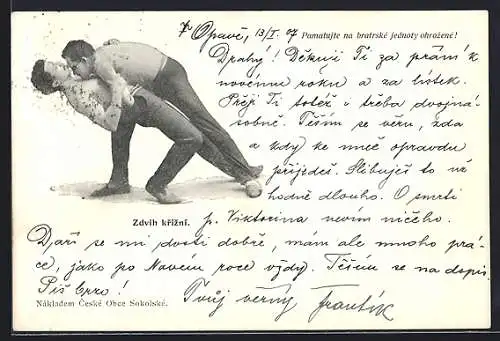 V Opavě, 13/I. 07
Pamatujte na bratrské jednoty ohrožené!
Drahý! Děkuji Ti za přání k
novému roku a za lístek.
Přeji Ti totéž i třeba dvojná-
sobně. Těším se věru, zda
a kdy ke mně opravdu
přijdeš. Slibuješ to už
hodně dlouho. O smrti
Zdvih křižní.
p. Viktorina nevím ničeho.
Daří se mi dosti dobře, mám ale mnoho prá-
ce, jako po Novém roce vždy. Těším se na dopis.
Piš brzo!
Nákladem České Obce Sokolské.
Tvůj věrný Frantík